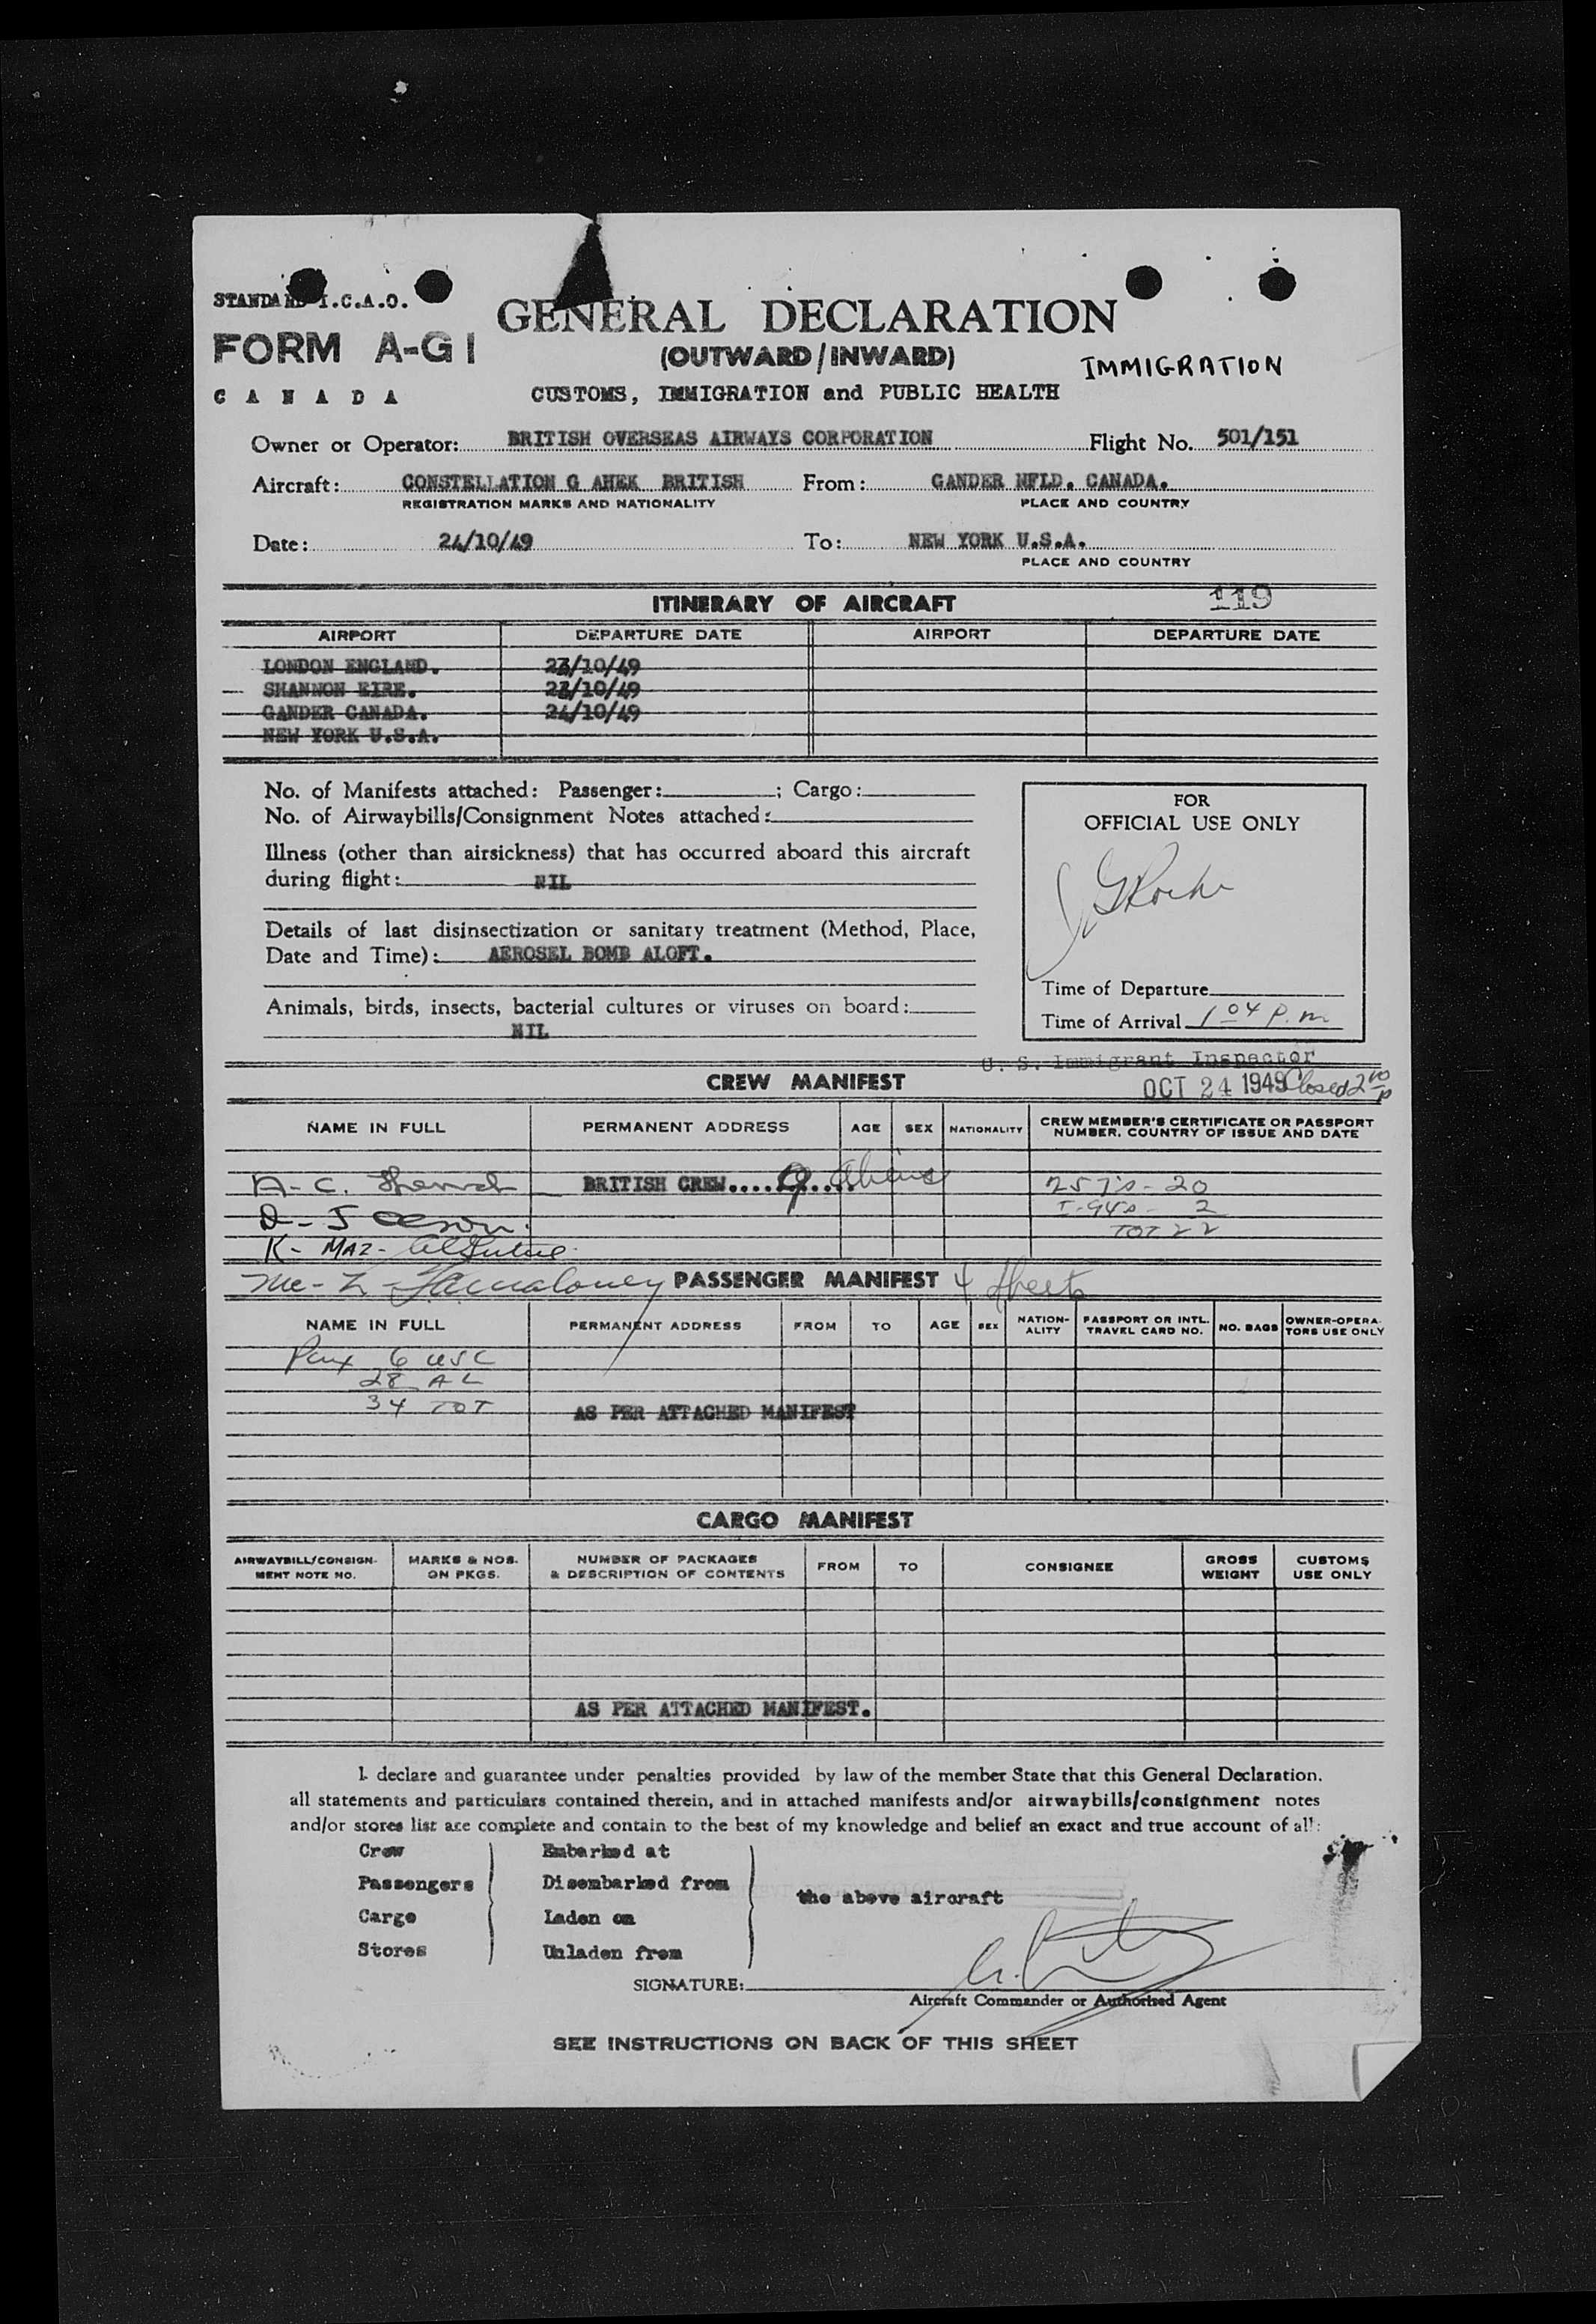 STANDARD I.C.A.O.
FORM A-G1
CANADA
GENERAL DECLARATION
(OUTWARD/INWARD)
IMMIGRATION
CUSTOMS, IMMIGRATION and PUBLIC HEALTH
Owner or Operator: BRITISH OVERSEAS AIRWAYS CORPORATION Flight No. 501/151
Aircraft: CONSTELLATION G AHEK BRITISH From: GANDER NFLD. CANADA.
REGISTRATION MARKS AND NATIONALITY PLACE AND COUNTRY
Date: 24/10/49 To: NEW YORK U.S.A.
PLACE AND COUNTRY
ITINERARY OF AIRCRAFT 119
AIRPORT DEPARTURE DATE AIRPORT DEPARTURE DATE
LONDON ENGLAND. 23/10/49
SHANNON EIRE. /10/49
GANDER CANADA. 24/10/49
NEW YORK U.S.A.
No. of Manifests attached: Passenger: ; Cargo:
No. of Airwaybills/Consignment Notes attached:
Illness (other than airsickness) that has occurred aboard this aircraft
during flight: NIL
Details of last disinsectization or sanitary treatment (Method, Place,
Date and Time): AEROSEL BOMB ALOFT.
Animals, birds, insects, bacterial cultures or viruses on board:
NIL
FOR
OFFICIAL USE ONLY
Time of Departure
Time of Arrival 1 04 P.m
U. S. Immigrant Inspector
OCT 24 1949 Closed 2
CREW MANIFEST
NAME IN FULL PERMANENT ADDRESS AGE SEX NATIONALITY CREW MEMBER'S CERTIFICATE OR PASSPORT
NUMBER, COUNTRY OF ISSUE AND DATE
A-C. BRITISH CREW....9.... Aliens 257's - 20
D-J I-94s - 2
TOT 22
K- MAZ-
Mc-Z PASSENGER MANIFEST 4 sheets
NAME IN FULL PERMANENT ADDRESS FROM TO AGE SEX NATION-
ALITY PASSPORT OR INTL.
TRAVEL CARD NO. NO. BAGS OWNER-OPERA-
TORS USE ONLY
Pax 6 USC
28 AL
34 TOT
AS PER ATTACHED MANIFEST
CARGO MANIFEST
AIRWAYBILL/CONSIGN-
MENT NOTE NO. MARKS & NOS.
ON PKGS. NUMBER OF PACKAGES
& DESCRIPTION OF CONTENTS FROM TO CONSIGNEE GROSS
WEIGHT CUSTOMS
USE ONLY
AS PER ATTACHED MANIFEST.
I declare and guarantee under penalties provided by law of the member State that this General Declaration.
all statements and particulars contained therein, and in attached manifests and/or airwaybills/consignment notes
and/or stores list are complete and contain to the best of my knowledge and belief an exact and true account of all:
Crew Embarked at
Passengers Disembarked from
the above aircraft
Cargo Laden on
Stores Unladen from
SIGNATURE:
Aircraft Commander or Authorised Agent
SEE INSTRUCTIONS ON BACK OF THIS SHEET